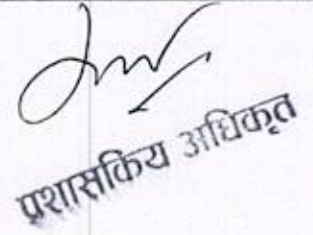 प्रशासकिय अधिकृत